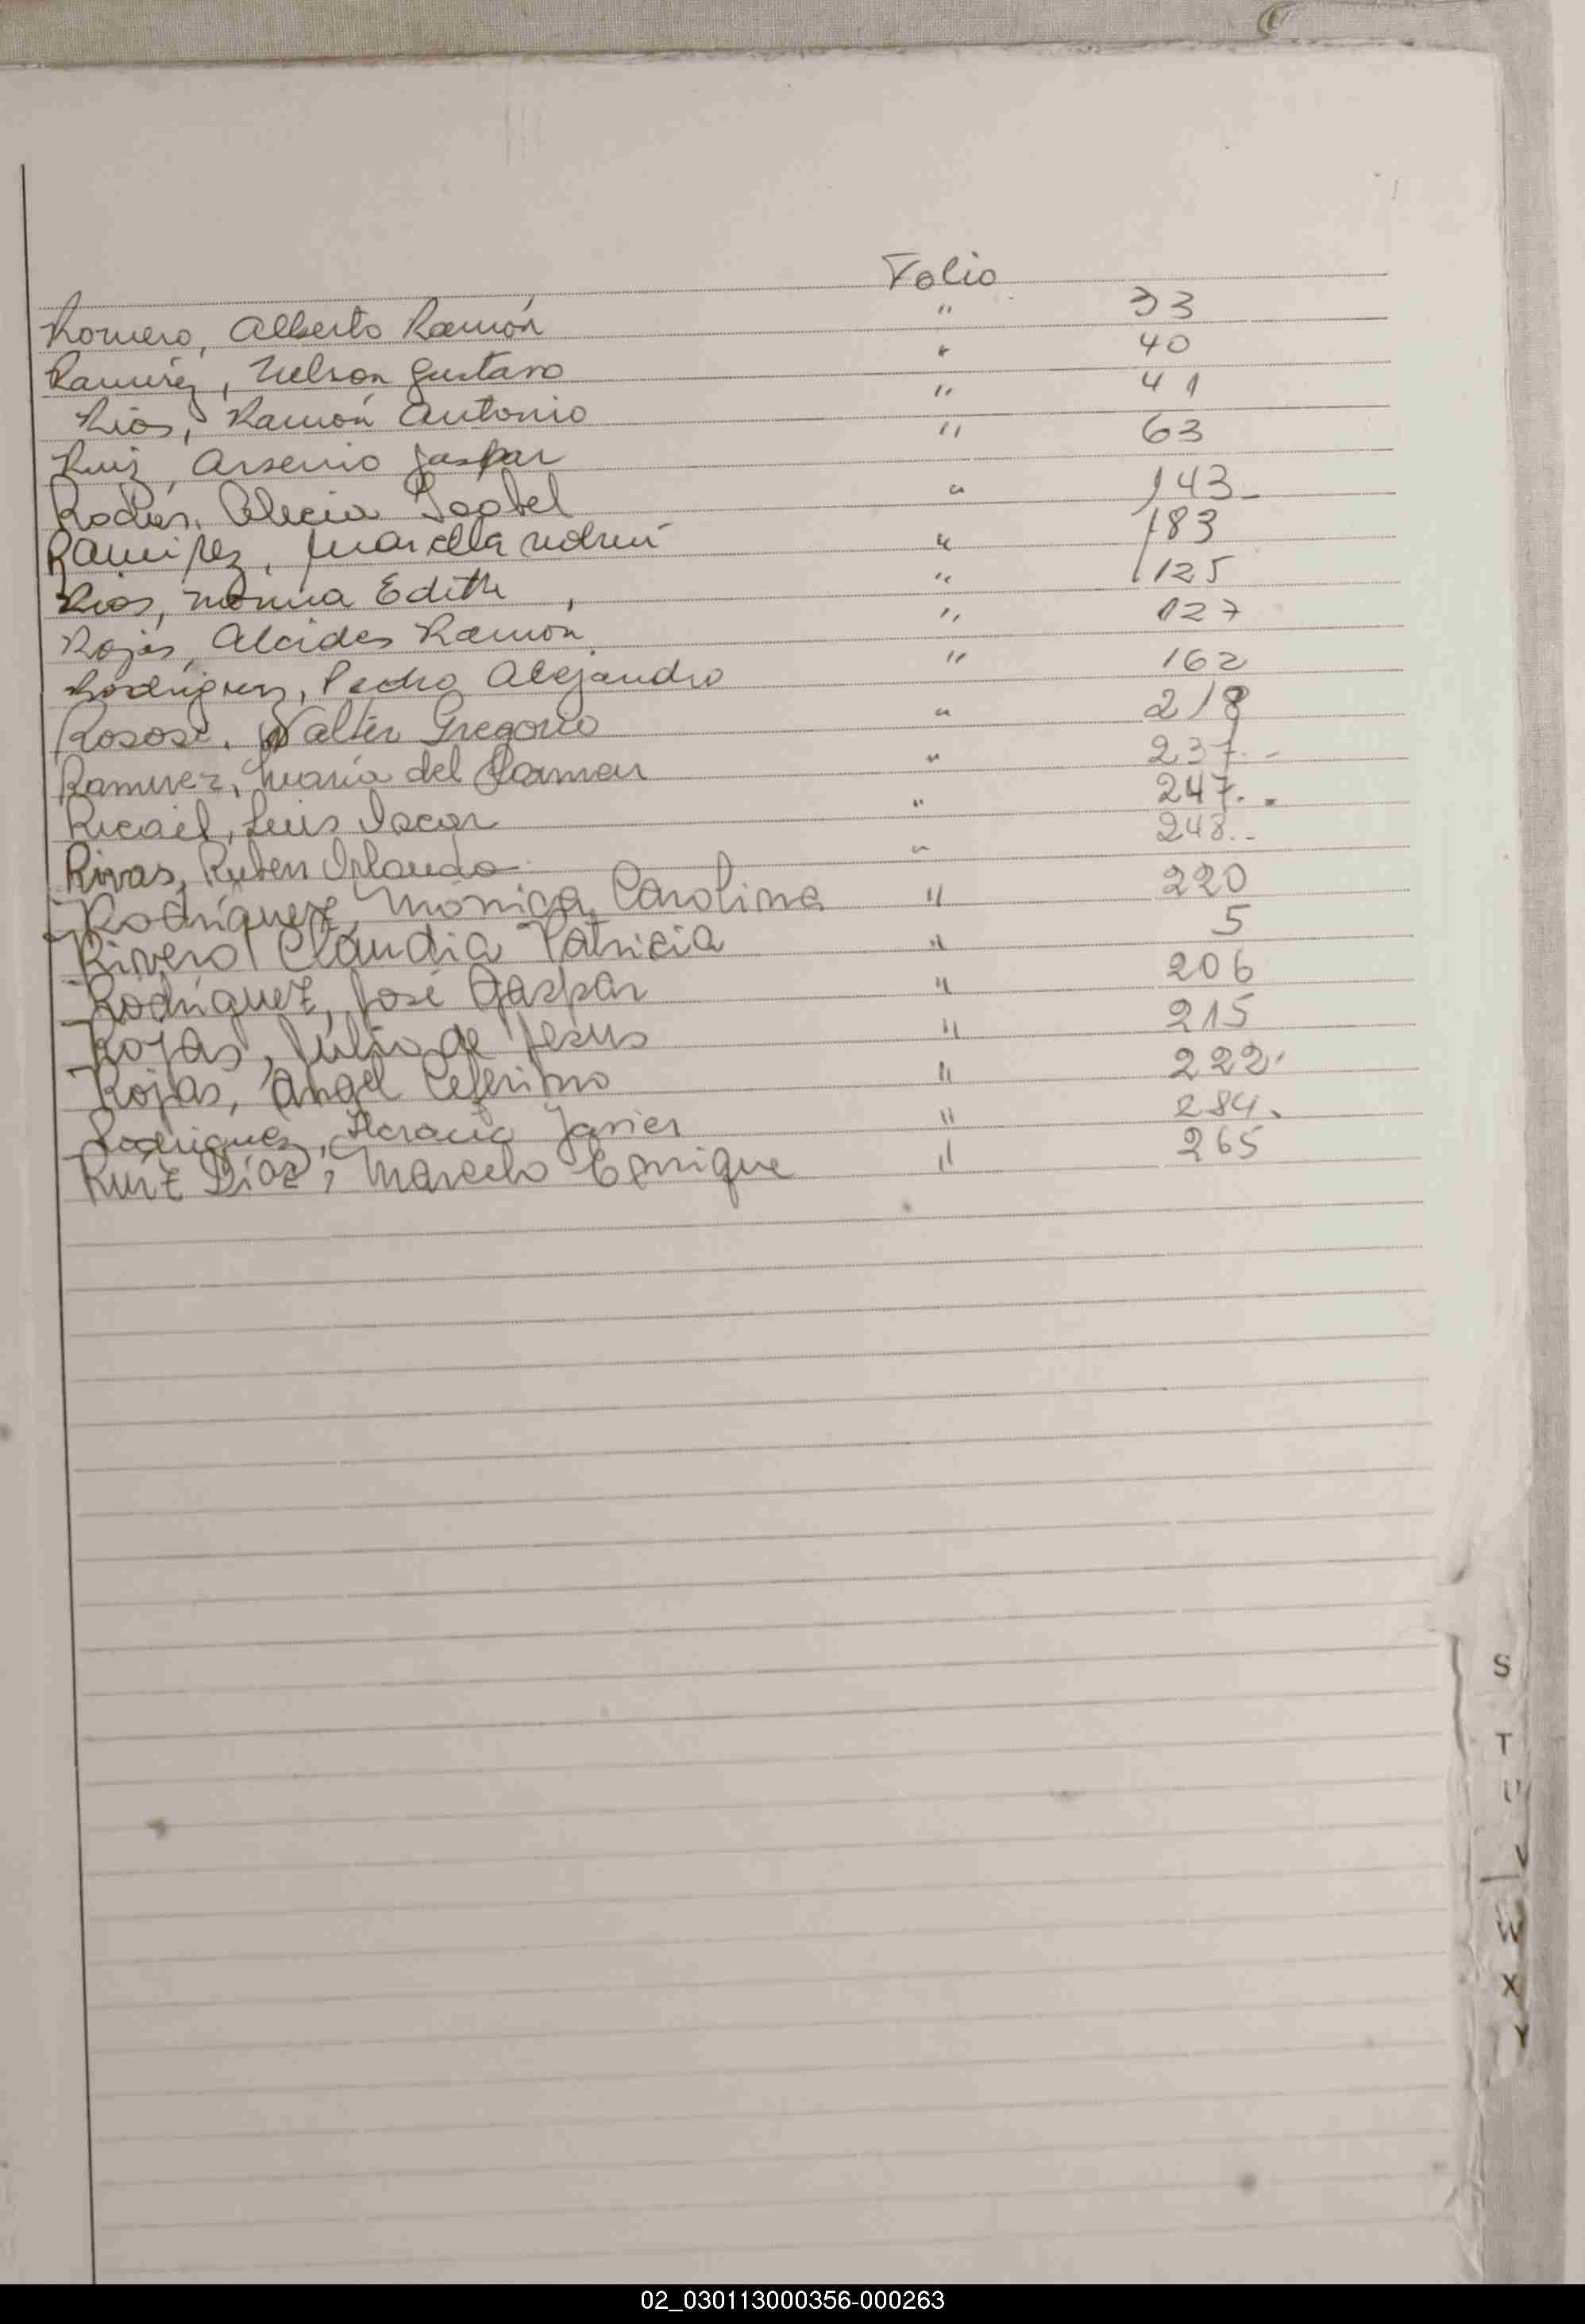 Folio
Romero, Alberto Ramón " 33
Ramírez, Nelson Gustavo " 40
Ríos, Ramón Antonio " 41
Ruiz, Arsenio Gaspar " 63
Isabel " 143-
Ramirez, Mariella " 183
Rios, Norma Edith, " 125
Rojas, Alcides Ramón " 127
Rodríguez, Pedro Alejandro " 162
Walter Gregorio " 218
Ramirez, María del Carmen " 237.-
Ricail, Luis Oscar " 247.-
Rivas, Ruben Orlando " 248.-
Rodríguez, Mónica Carolina " 220
Rivero, Claudia Patricia " 5
Rodríguez, José Gaspar " 206
Rojas, Julio de Jesus " 215
Rojas, Angel Ceferino " 222.
Rodriguez, Horacio Javier " 284.
Ruíz Díaz, Marcelo Enrique " 265
S
T
U
V
W
X
Y
02_030113000356-000263